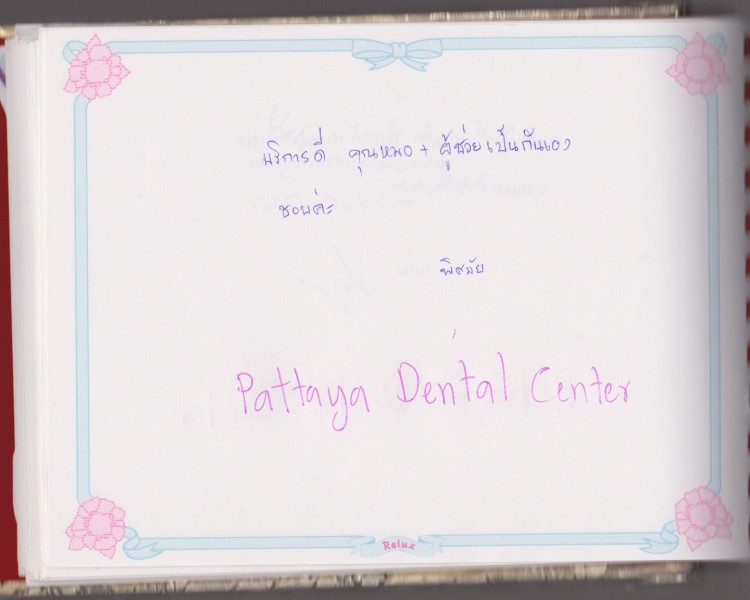 บริการดี คุณหมอ + ผู้ช่วยเป็นกันเอง
ชอบค่ะ
พิศมัย
Pattaya Dental Center
Relux